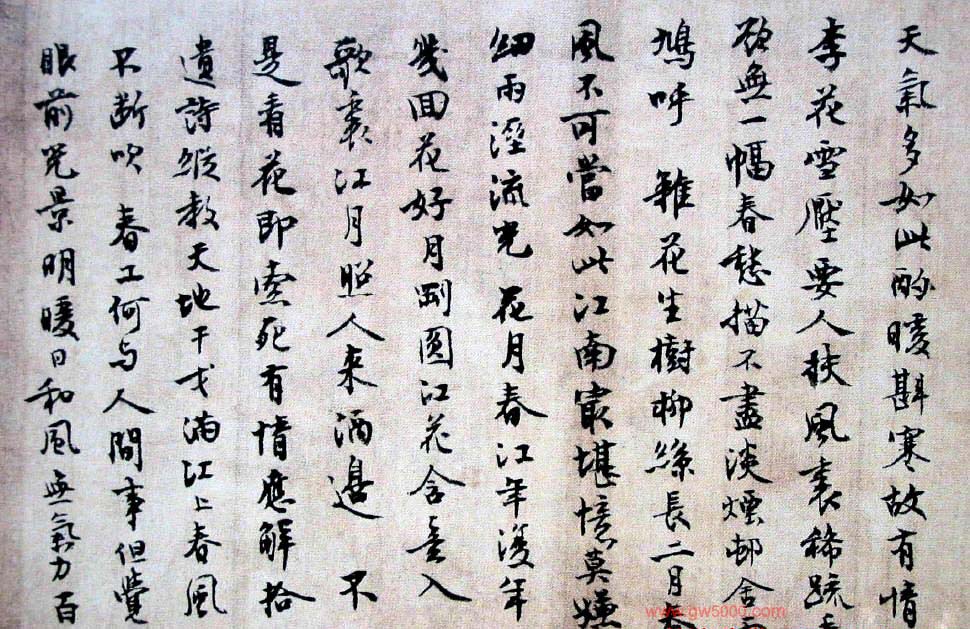 天氣多如此酌暖斟寒故有情
李花雪壓要人扶風裏稀疏
顏無一幅春愁描不盡淡煙邨舍
鳩呼 雜花生樹柳絲長二月春
風不可當如此江南最堪憶莫嫌
細雨溼流光 花月春江年復年
幾回花好月剛圓江花含意入
歌裏江月照人來酒邊 不
是看花即索死有情應解拾
遺詩縱教天地干戈滿江上春風
不斷吹 春工何与人間事但覺
眼前光景明暖日和風無氣力百
www.gw5000.com